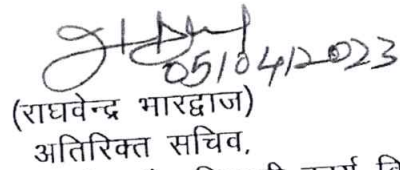 05/04/2023
(राघवेन्द्र भारद्वाज)
अतिरिक्त सचिव,